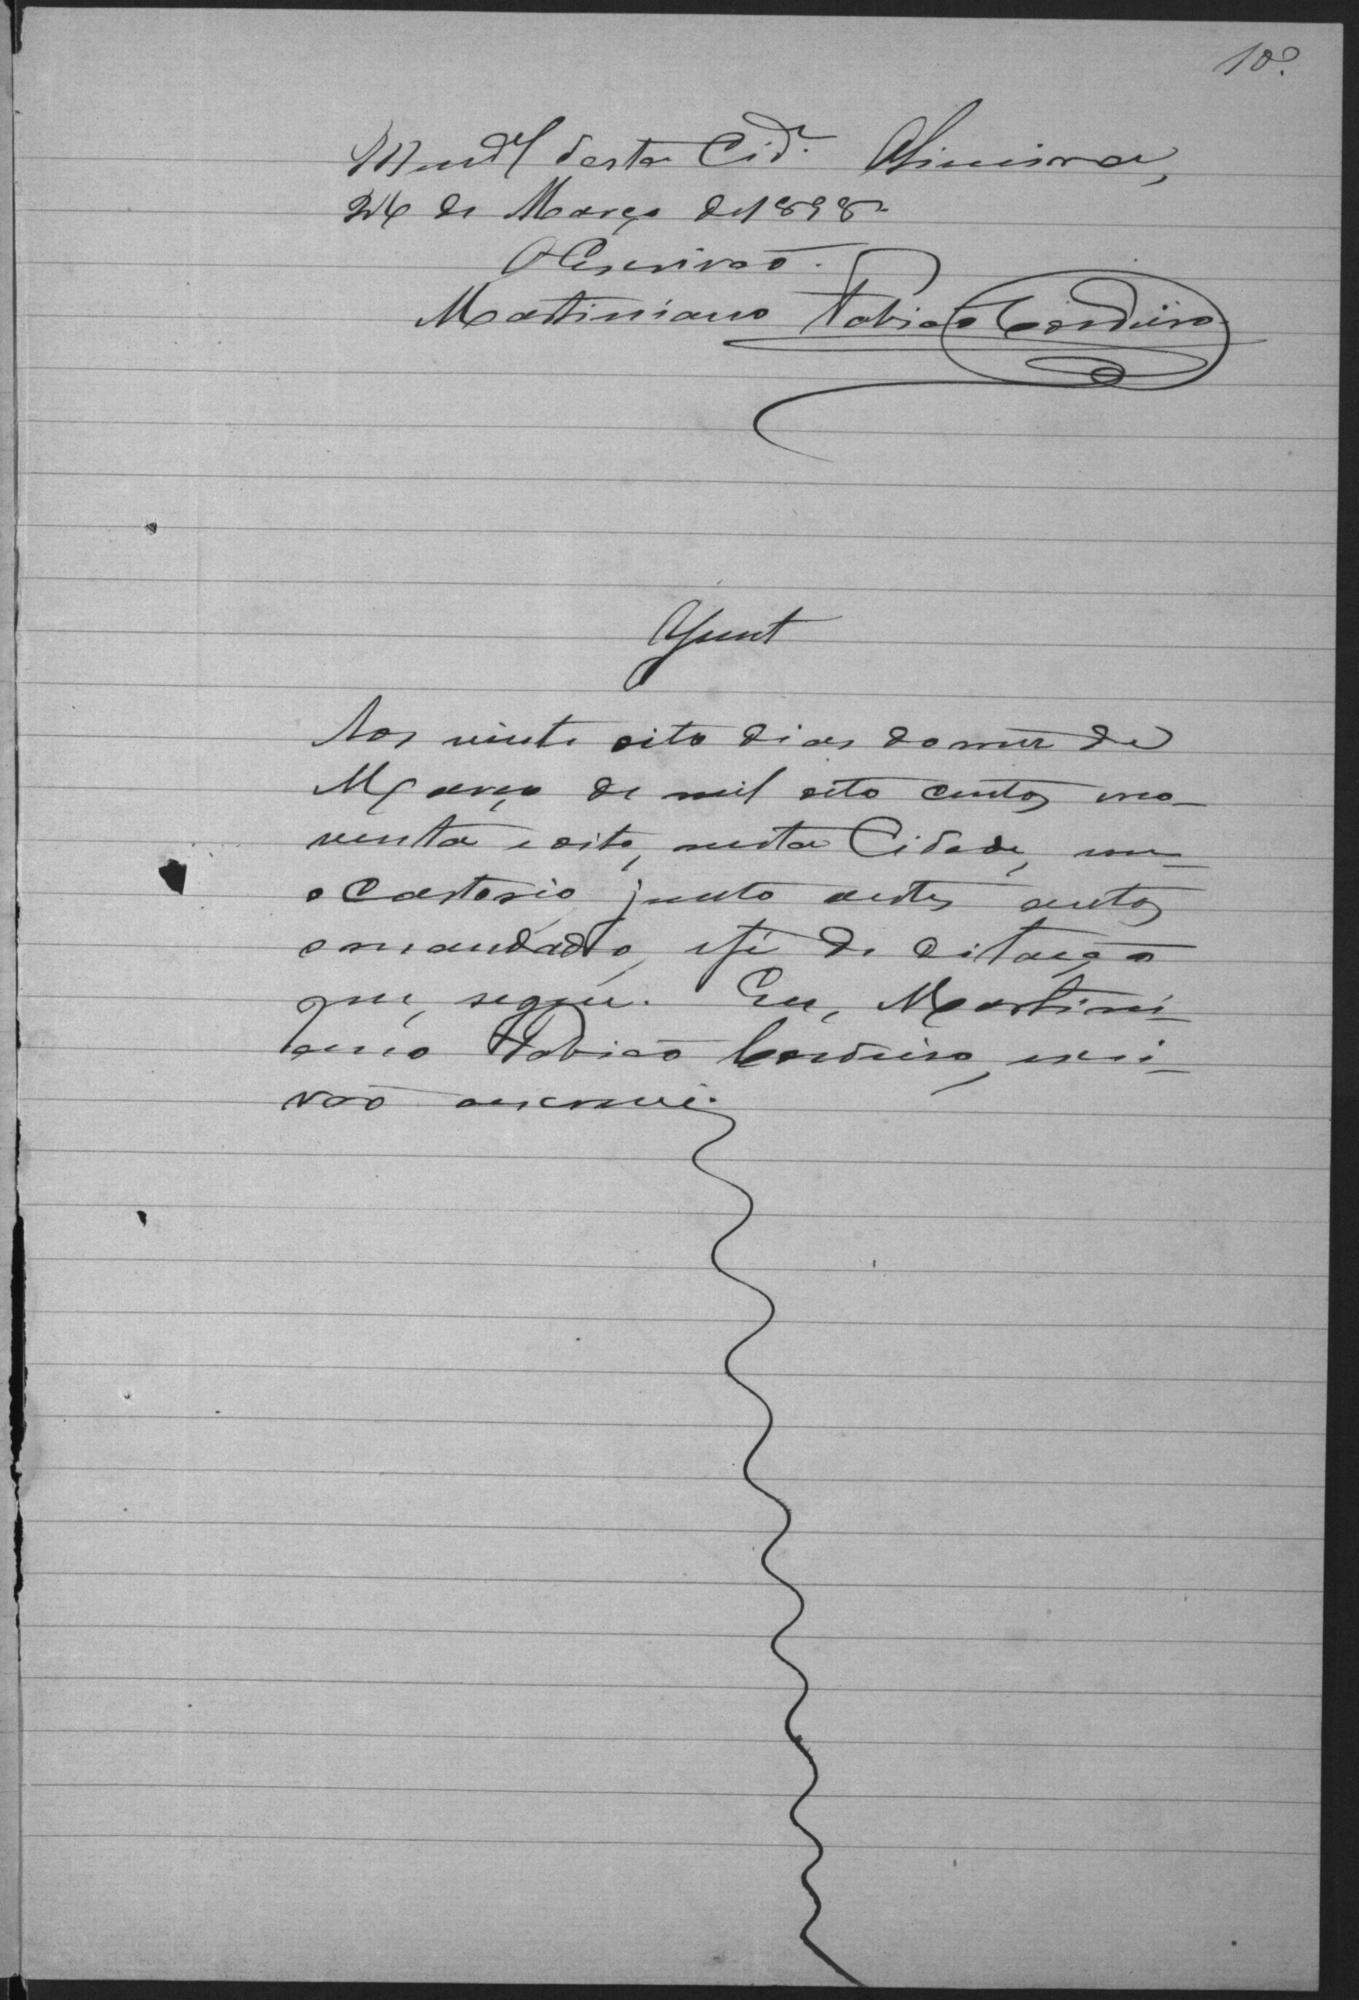 10
desta Cid.e Limeira,
24 de Março de 1898
O Escrivão.
Martiniano Fabião Cordeiro
Junt
Aos vinte oito dias do mez de
Março de mil oito centos no-
venta e oito, nesta Cidade, em
o Cartorio junto a estes autos
o mandado, e fé de citação
que, segue. Eu, Martini-
ano Fabião Cordeiro, escri-
vão escrevi.